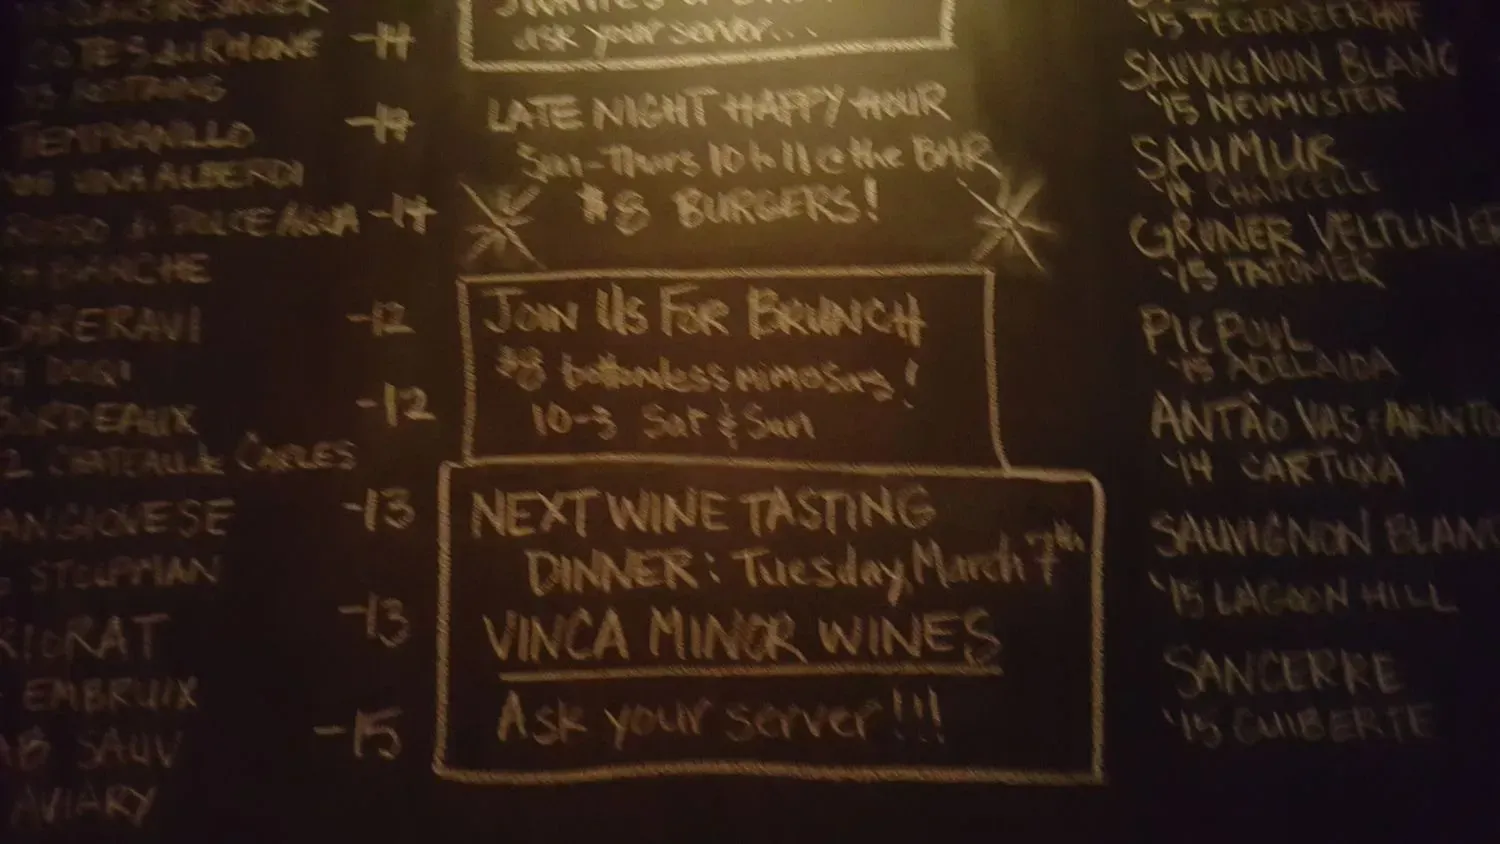 CÔTES DU RHONE -14
TEMPRANILLO
VIÑA ALBERDI
ROSSO di DOLCEAQUA -14
BIANCHE
SAPERAVI -12
DORI
BORDEAUX -12
CHATEAU de CARLES
SANGIOVESE -13
STOLPMAN
PRIORAT -13
EMBRUIX
CAB SAUV -15
AVIARY
ask your server...
LATE NIGHT HAPPY HOUR
Sun-Thurs 10 to 11 @ the BAR
$8 BURGERS!
JOIN US FOR BRUNCH
$8 bottomless mimosas!
10-3 Sat & Sun
NEXT WINE TASTING
DINNER: Tuesday, March 7th
VINCA MINOR WINES
Ask your server!!!
'15 TEGERNSEERHOF
SAUVIGNON BLANC
'15 NEUMEISTER
SAUMUR
'14 CHANCELLE
GRUNER VELTLINER
'15 TATOMER
PICPOUL
'15 ADELAIDA
ANTÃO VAS & ARINTO
'14 CARTUXA
SAUVIGNON BLANC
'15 LAGOON HILL
SANCERRE
'15 GUIBERTE